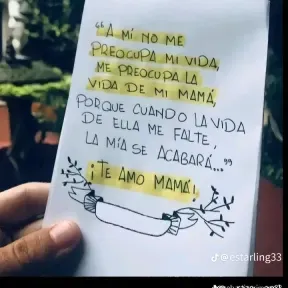 "A MÍ NO ME
PREOCUPA MI VIDA,
ME PREOCUPA LA
VIDA DE MI MAMÁ,
PORQUE CUANDO LA VIDA
DE ELLA ME FALTE,
LA MÍA SE ACABARÁ..."
¡TE AMO MAMÁ!
@estarling33